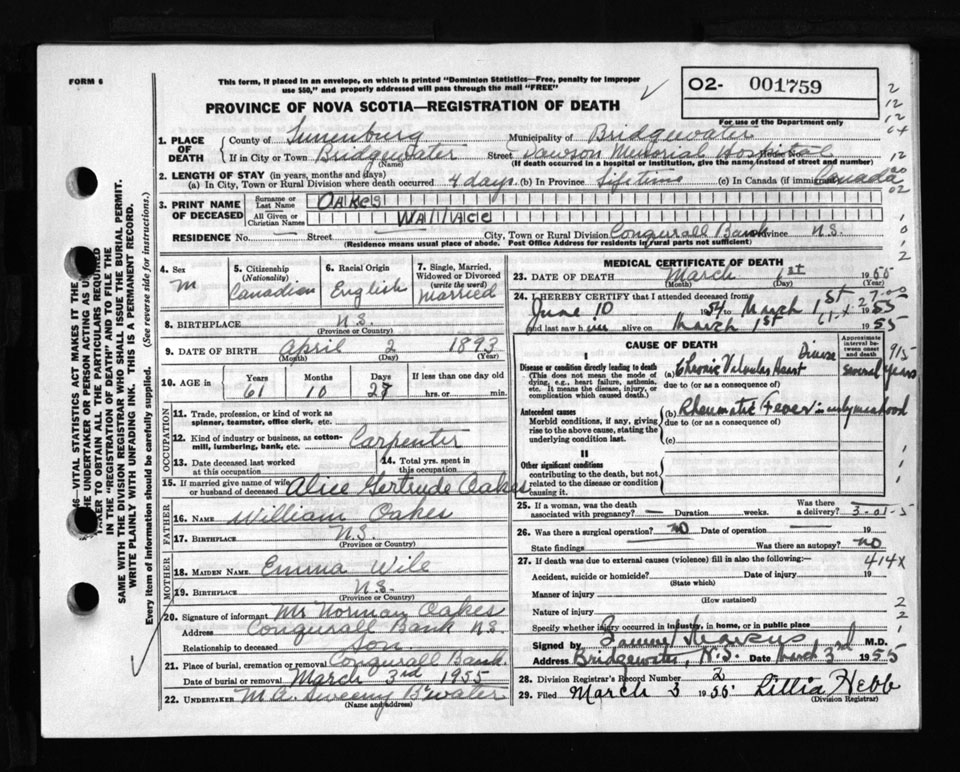 FORM 6
This form, if placed in an envelope, on which is printed "Dominion Statistics—Free, penalty for improper
use $50," and properly addressed will pass through the mail "FREE"
PROVINCE OF NOVA SCOTIA—REGISTRATION OF DEATH
02- 001759
For use of the Department only
2
12
12
64
12
20
02
1
0
1
2
46—VITAL STATISTICS ACT MAKES IT THE
THE UNDERTAKER OR PERSON ACTING AS
TAKER TO OBTAIN ALL THE PARTICULARS REQUIRED
IN THE "REGISTRATION OF DEATH" AND TO FILE THE
SAME WITH THE DIVISION REGISTRAR WHO SHALL ISSUE THE BURIAL PERMIT.
WRITE PLAINLY WITH UNFADING INK. THIS IS A PERMANENT RECORD.
Every item of information should be carefully supplied. (See reverse side for instructions.)
1. PLACE OF DEATH
County of Lunenburg Municipality of Bridgewater
If in City or Town Bridgewater Street Dawson Memorial Hospital House No.
(Name) (If death occurred in a hospital or institution, give the name instead of street and number)
2. LENGTH OF STAY (in years, months and days)
(a) In City, Town or Rural Division where death occurred 4 days (b) In Province Lifetime (c) In Canada (if immigrant) Canada
3. PRINT NAME OF DECEASED
Surname or Last Name OAKES
All Given or Christian Names WALLACE
RESIDENCE No. — Street — City, Town or Rural Division Conqurall Bank Province N.S.
(Residence means usual place of abode. Post Office Address for residents in rural parts not sufficient)
4. Sex
M
5. Citizenship (Nationality)
Canadian
6. Racial Origin
English
7. Single, Married, Widowed or Divorced (write the word)
Married
8. BIRTHPLACE N.S.
(Province or Country)
9. DATE OF BIRTH April 2 1893
(Month) (Day) (Year)
10. AGE IN Years Months Days If less than one day old
61 10 27 hrs. or min.
OCCUPATION
11. Trade, profession, or kind of work as
spinner, teamster, office clerk, etc.
12. Kind of industry or business, as cotton-
mill, lumbering, bank, etc. Carpenter
13. Date deceased last worked
at this occupation
14. Total yrs. spent in
this occupation
15. If married give name of wife
or husband of deceased Alice Gertrude Oakes
FATHER
16. NAME William Oakes
17. BIRTHPLACE N.S.
(Province or Country)
MOTHER
18. MAIDEN NAME Emma Wile
19. BIRTHPLACE N.S.
(Province or Country)
20. Signature of informant Mr Norman Oakes
Address Conqurall Bank N.S.
Relationship to deceased Son.
21. Place of burial, cremation or removal Conqurall Bank.
Date of burial or removal March 3rd 1955
22. UNDERTAKER M.A. Sweeny B'water
(Name and address)
MEDICAL CERTIFICATE OF DEATH
23. DATE OF DEATH March 1st 1955
(Month) (Day) (Year)
24. I HEREBY CERTIFY that I attended deceased from
June 10 1954 to March 1st 1955
and last saw him alive on March 1st 1955
27-00
61-X
CAUSE OF DEATH
Approximate interval between onset and death
915
I
Disease or condition directly leading to death
(This does not mean the mode of
dying, e.g., heart failure, asthenia,
etc. It means the disease, injury, or
complication which caused death.)
(a) Chronic Valvular Heart Disease Several Years
due to (or as a consequence of)
Antecedent causes
Morbid conditions, if any, giving
rise to the above cause, stating the
underlying condition last.
(b) Rheumatic Fever in early manhood
due to (or as a consequence of)
(c)
II
Other significant conditions
contributing to the death, but not
related to the disease or condition
causing it.
25. If a woman, was the death
associated with pregnancy? — Duration weeks. Was there
a delivery? 3-01-5
26. Was there a surgical operation? NO Date of operation 19
State findings Was there an autopsy? NO
27. If death was due to external causes (violence) fill in also the following:— 414X
Accident, suicide or homicide? Date of injury 19
(State which)
Manner of injury
(How sustained)
Nature of injury
Specify whether injury occurred in industry, in home, or in public place
Signed by Marcus M.D.
Address Bridgewater, N.S. Date March 3rd 1955
28. Division Registrar's Record Number 2
29. Filed March 3 1955. Lillia Hebb
(Division Registrar)